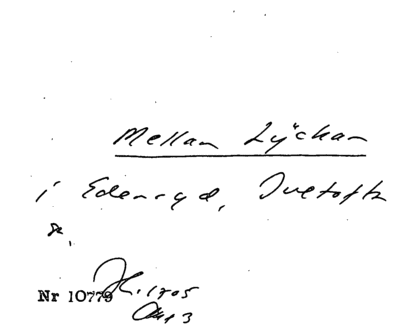 Mellan Lyckan
i Edenryd, Ivetofta
s.
Nr 10779
1705
Akt 3